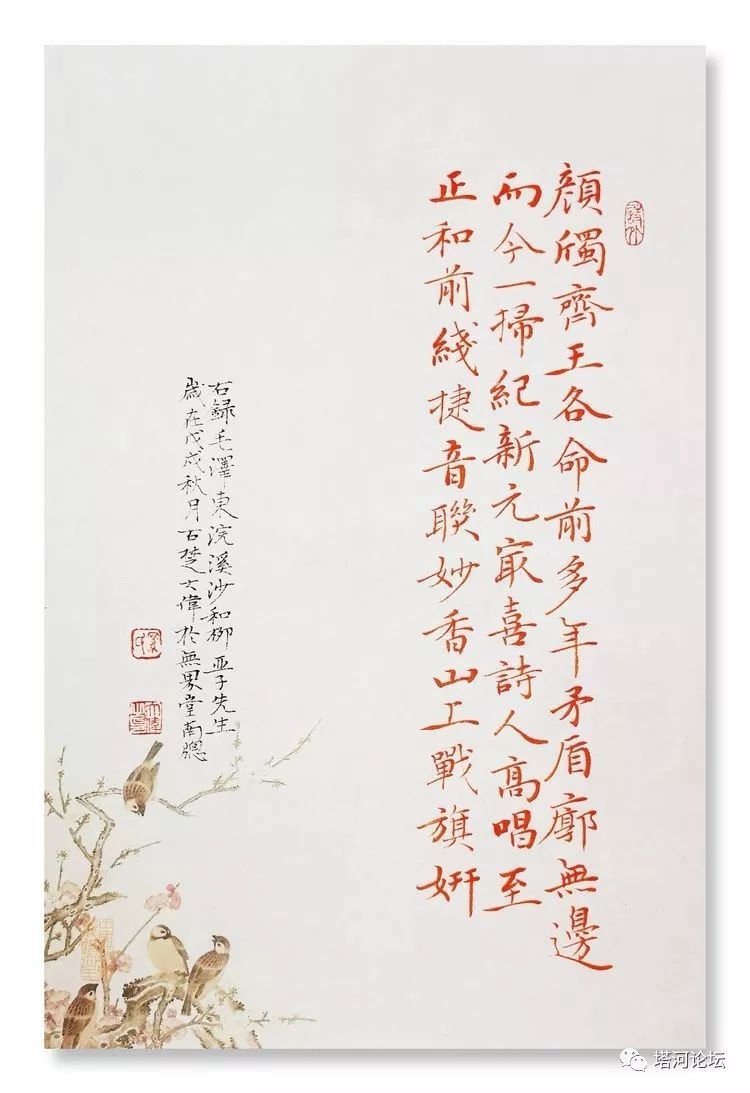 顏斶齊王各命前多年矛盾廓無邊
而今一掃紀新元冣喜詩人高唱至
正和前綫捷音聯妙香山上戰旗妍
右録毛澤東浣溪沙和柳亞子先生
歲在戊戌秋月古楚大偉於無界堂南牕
塔河论坛